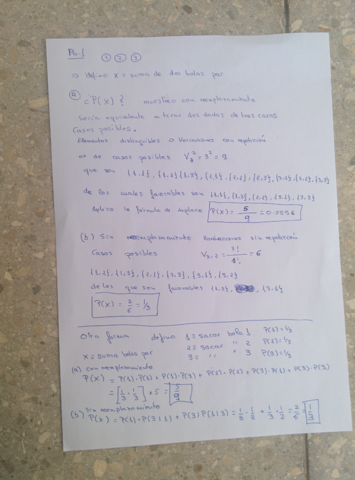 Pb.1 ① ② ③
⇒ defino x = suma de dos bolas par
ⓐ
¿P(X)? muestreo con reemplazamiento
Sería equivalente a tirar dos dados de tres caras
Casos posibles.
Elementos distinguibles ⇒ Variaciones con repetición
nº de casos posibles V₃² = 3² = 9
que son {1,1}, {1,2}, {1,3}, {2,1}, {2,2}, {2,3}, {3,1}, {3,2}, {3,3}
de los cuales favorables son {1,1}, {1,3}, {2,2}, {3,1}, {3,3}
Aplico la fórmula de Laplace P(X) = 5/9 = 0.5556
(b) Sin reemplazamiento Variaciones sin repetición
Casos posibles V₃,₂ = 3!/1! = 6
{1,2}, {1,3}, {2,1}, {2,3}, {3,1}, {3,2}
de los que son favorables {1,3}, {3,1}
P(X) = 2/6 = 1/3
Otra forma defino 1 = sacar bola 1 P(1) = 1/3
2 = sacar " 2 P(2) = 1/3
x = suma bolas par 3 = " " 3 P(3) = 1/3
(a) con reemplazamiento
P(X) = P(1)·P(1) + P(1)·P(3) + P(2)·P(2) + P(3)·P(1) + P(3)·P(3)
= [1/3 · 1/3] × 5 = 5/9
(b) Sin reemplazamiento
P(X) = P(1)·P(3|1) + P(3)P(1|3) = 1/3 · 1/2 + 1/3 · 1/2 = 2/6 = 1/3